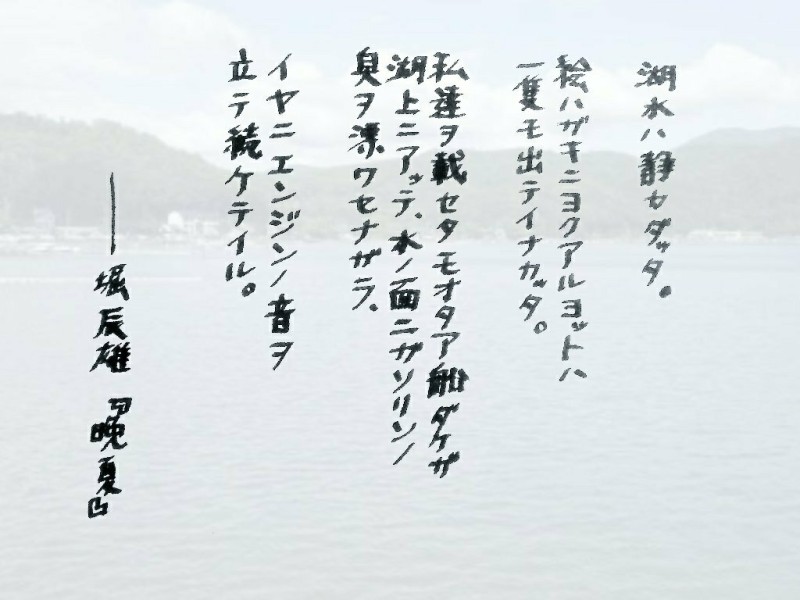 湖水ハ静カダッタ。
絵ハガキニヨクアルヨットハ
一隻モ出テイナカッタ。
私達ヲ載セタモオタア船ダケガ
湖上ニアッテ、水ノ面ニガソリンノ
臭ヲ漂ワセナガラ、
イヤニエンジンノ音ヲ
立テ続ケテイル。
――堀辰雄『晩夏』